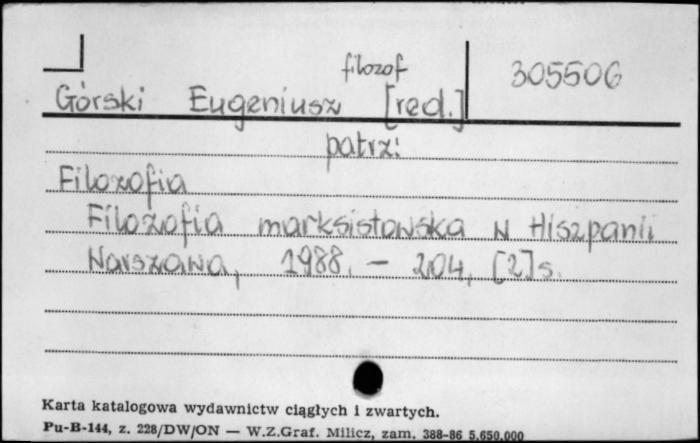 filozof
305506
Górski Eugeniusz [red.]
patrz:
Filozofia
Filozofia marksistowska w Hiszpanii
Warszawa, 1988. - 204, [2] s.
Karta katalogowa wydawnictw ciągłych i zwartych.
Pu-B-144, z. 228/DW/ON — W.Z.Graf. Milicz, zam. 388-86 5.650.000